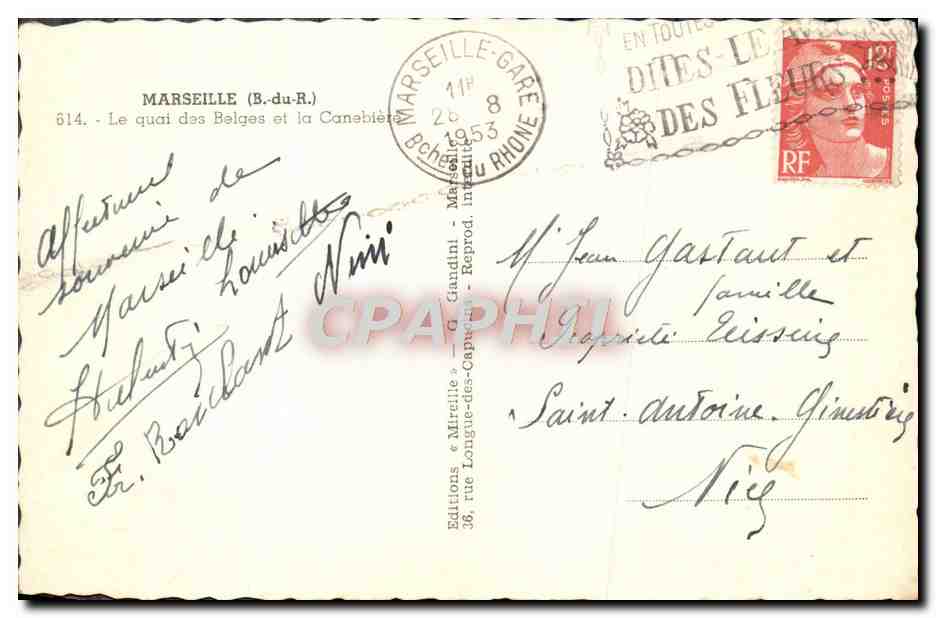 MARSEILLE (B.-du-R.)
614. - Le quai des Belges et la Canebière
MARSEILLE-GARE
11H
26 8
1953
Bches du RHONE
EN TOUTES
DITES-LE AVEC
DES FLEURS...
12F
POSTES
RF
Affectueux
souvenir de
Marseille
Louisette
Nini
Fr. Bouchard
Editions « Mireille » - G. Gandini - Marseille
36, rue Longue-des-Capucins - Reprod. interdite
CPAPHIL
Mr Jean Gastaut et
famille
Propriété Teisseire
Saint-Antoine-Ginestière
Nice